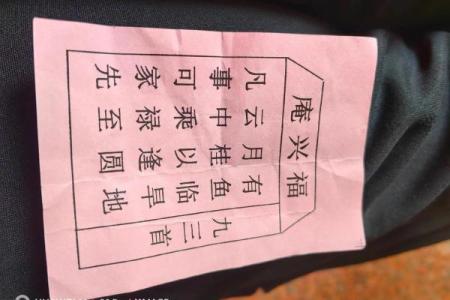 福兴庵
九三首
有鱼临旱地
月桂以逢圆
云中乘禄至
凡事可家先